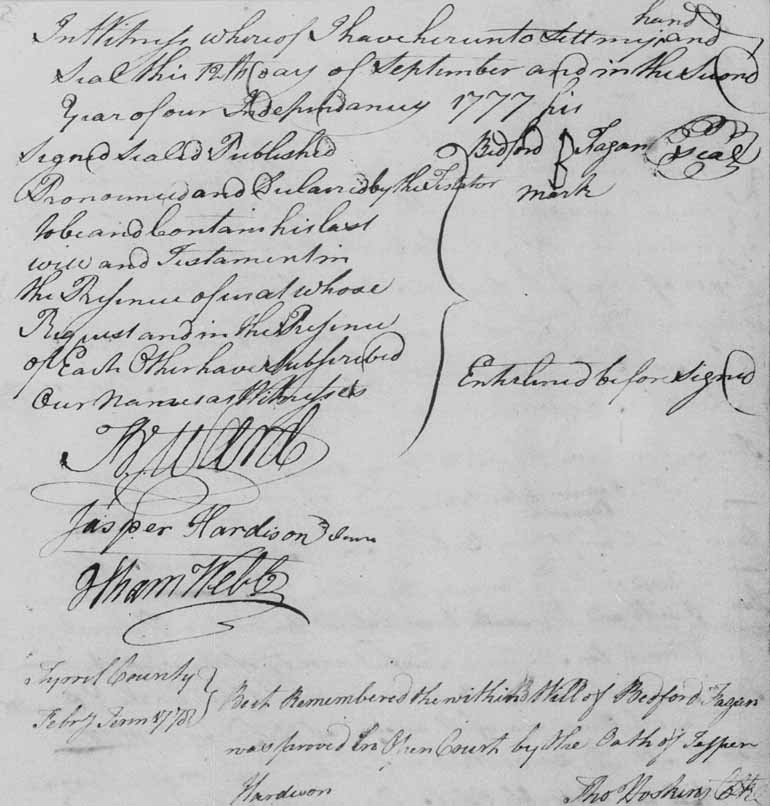 In Witness whereof I have hereunto Sett my hand and
Seal this 12th Day of September and in the Second
Year of our Independancy 1777 his
Signed Sealed Published
Bedford Fagan Seal
mark
Pronounced and Declared by the Testator
to be and Contain his last
will and Testament in
the Presence of us at whose
Request and in the Presence
of Each Other have Subscribed
Our Names as Witnesses
Enterlined before Signed
Jasper Hardison Junr
Isham Webb
Tyrril County
Febry Term 1778
Be it Remembered the within Will of Bedford Fagan
was proved in Open Court by the Oath of Jasper
Hardison
Tho Hoskins Clk